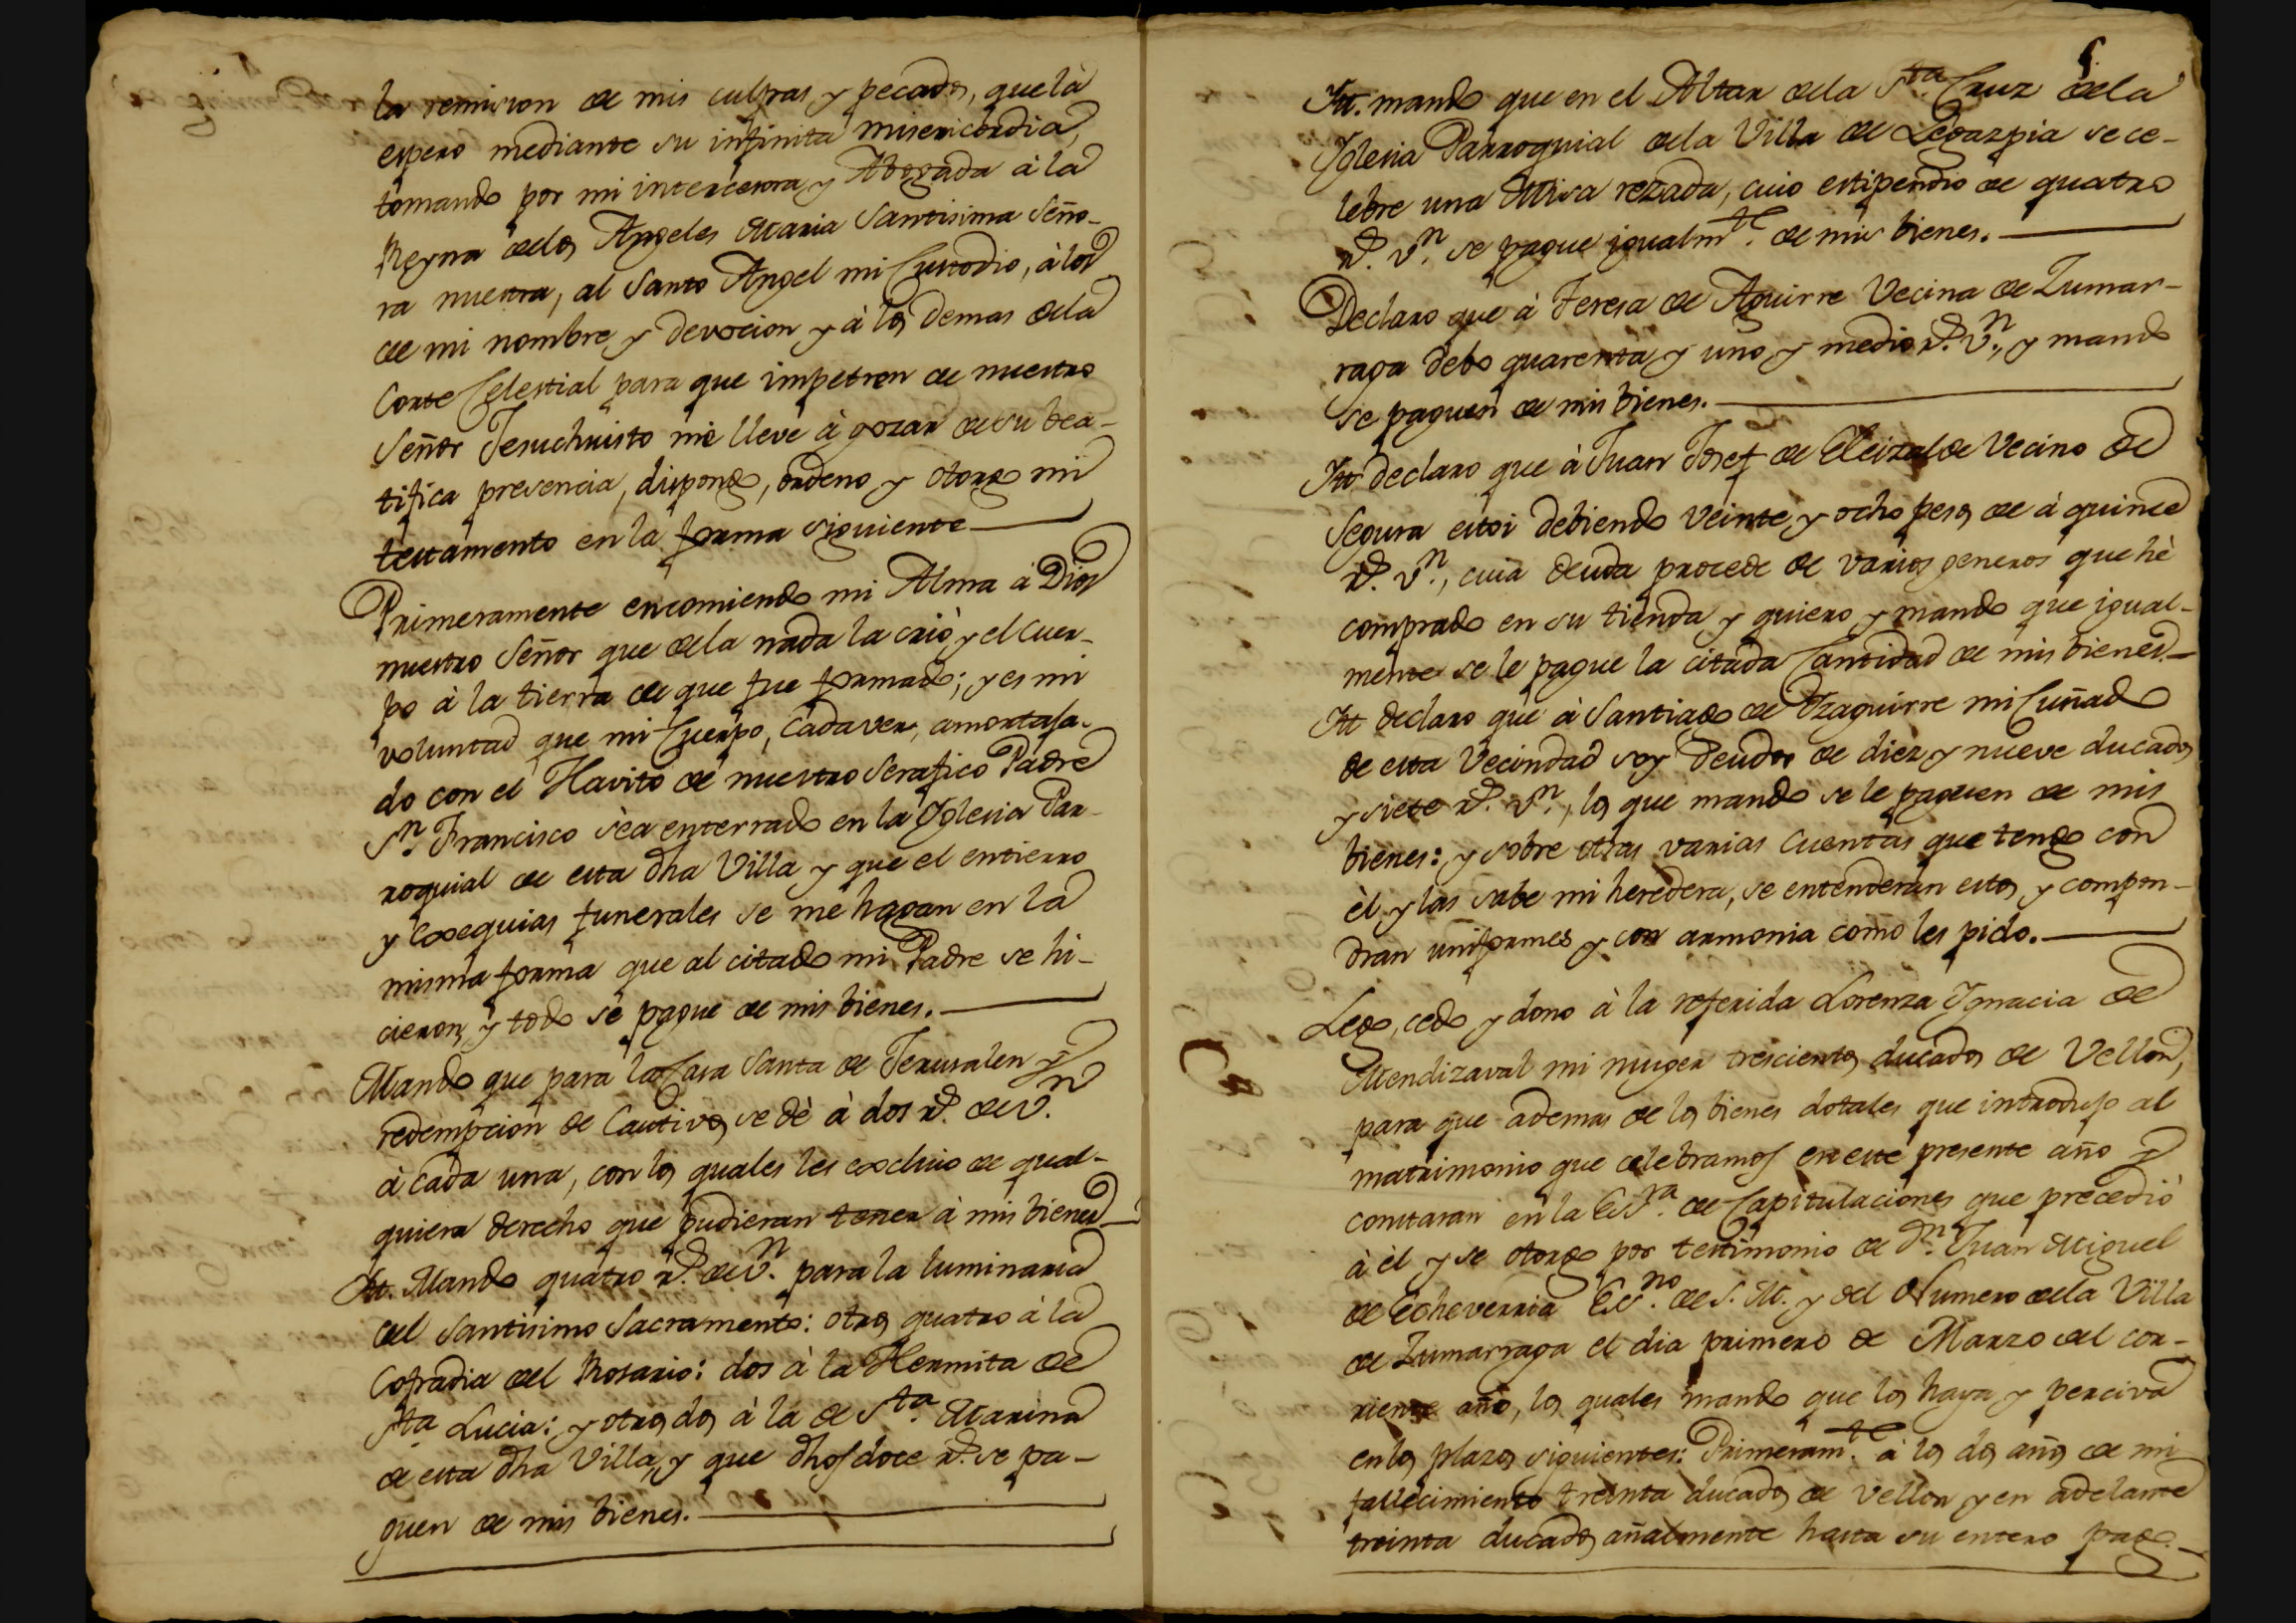 la remision de mis culpas y pecados, que la
espero mediante su infinita misericordia,
tomando por mi intercesora, y Abogada à la
Reyna delos Angeles Maria Santisima Seño-
ra nuestra, al Santo Angel mi Custodio, à los
de mi nombre y devocion y à los demas dela
Corte Celestial para que impetren de nuestro
Señor Jesuchristo me lleve à gozar de su bea-
tifica presencia, dispongo, ordeno y otorgo mi
testamento en la forma siguiente
Primeramente encomiendo mi Alma à Dios
nuestro Señor que dela nada la criò y el cuer-
po à la tierra de que fue formado; y es mi
voluntad que mi Cuerpo, Cadaver, amortaja-
do con el Havito de nuestro Serafico Padre
Sn. Francisco sea enterrado en la Yglesia Par-
roquial de esta dha Villa y que el entierro
y exequias funerales se me hagan en la
misma forma que al citado mi Padre se hi-
cieron, y todo se pague de mis bienes.
Mando que para la Casa Santa de Jerusalen y
redempcion de Cautivos se dè à dos rs. de vn.
à cada una, con los quales les excluio de qual-
quiera derecho que pudieran tener à mis bienes
Itt. Mando quatro rs. de vn. para la luminaria
del Santisimo Sacramento: otros quatro à la
Cofradia del Rosario: dos à la Hermita de
Sta Lucia: y otros dos à la de Sta. Marina
de esta dha Villa, y que dhos doce rs. se pa-
guen de mis bienes.
5.
Itt. mando que en el Altar dela Sta. Cruz dela
Yglesia Parroquial dela Villa de Legazpia se ce-
lebre una Misa rezada, cuio estipendio de quatro
rs. vn. se pague igualmte. de mis bienes.
Declaro que à Teresa de Aguirre Vecina de Zumar-
raga debo quarenta y uno y medio rs. vn., y mando
se paguen de mis bienes.
Itt declaro que à Juan Josef de Eleizalde Vecino de
Segura estoi debiendo veinte y ocho pesos de à quince
rs. vn., cuia deuda procede de varios generos que hè
comprado en su tienda y quiero y mando que igual-
mente se le pague la citada Cantidad de mis bienes.
Itt declaro que à Santiago de Yzaguirre mi Cuñado
de esta Vecindad soy Deudor de diez y nueve ducados
y siete rs. vn., los que mando se le paguen de mis
bienes: y sobre otras varias Cuentas que tengo con
èl y las sabe mi heredera, se entenderàn estos y compon-
dran uniformes y con armonia como les pido.
Lego, cedo y dono à la referida Lorenza Ygnacia de
Mendizaval mi muger trescientos ducados de Vellon,
para que ademas de los bienes dotales que introdujo al
matrimonio que celebramos en este presente año y
constaran en la Essra. de Capitulaciones que precediò
à èl y se otorgo por testimonio de Dn. Juan Miguel
de Echeverria Essno. de S. M. y del Numero dela Villa
de Zumarraga el dia primero de Marzo del cor-
riente año, los quales mando que los haya y perciva
en los plazos siguientes: Primeramte. à los dos años de mi
fallecimiento treinta ducados de vellon y en adelante
treinta ducados añalmente hasta su entero pago.